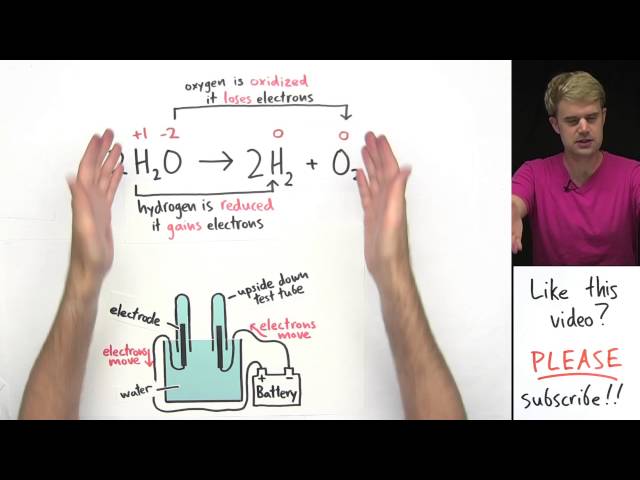 oxygen is oxidized
it loses electrons
+1 -2 0 0
2 H2O → 2H2 + O2
hydrogen is reduced
it gains electrons
upside down
test tube
electrode
electrons
move
electrons
move
water
+ -
Battery
Like this
video?
PLEASE
subscribe!!